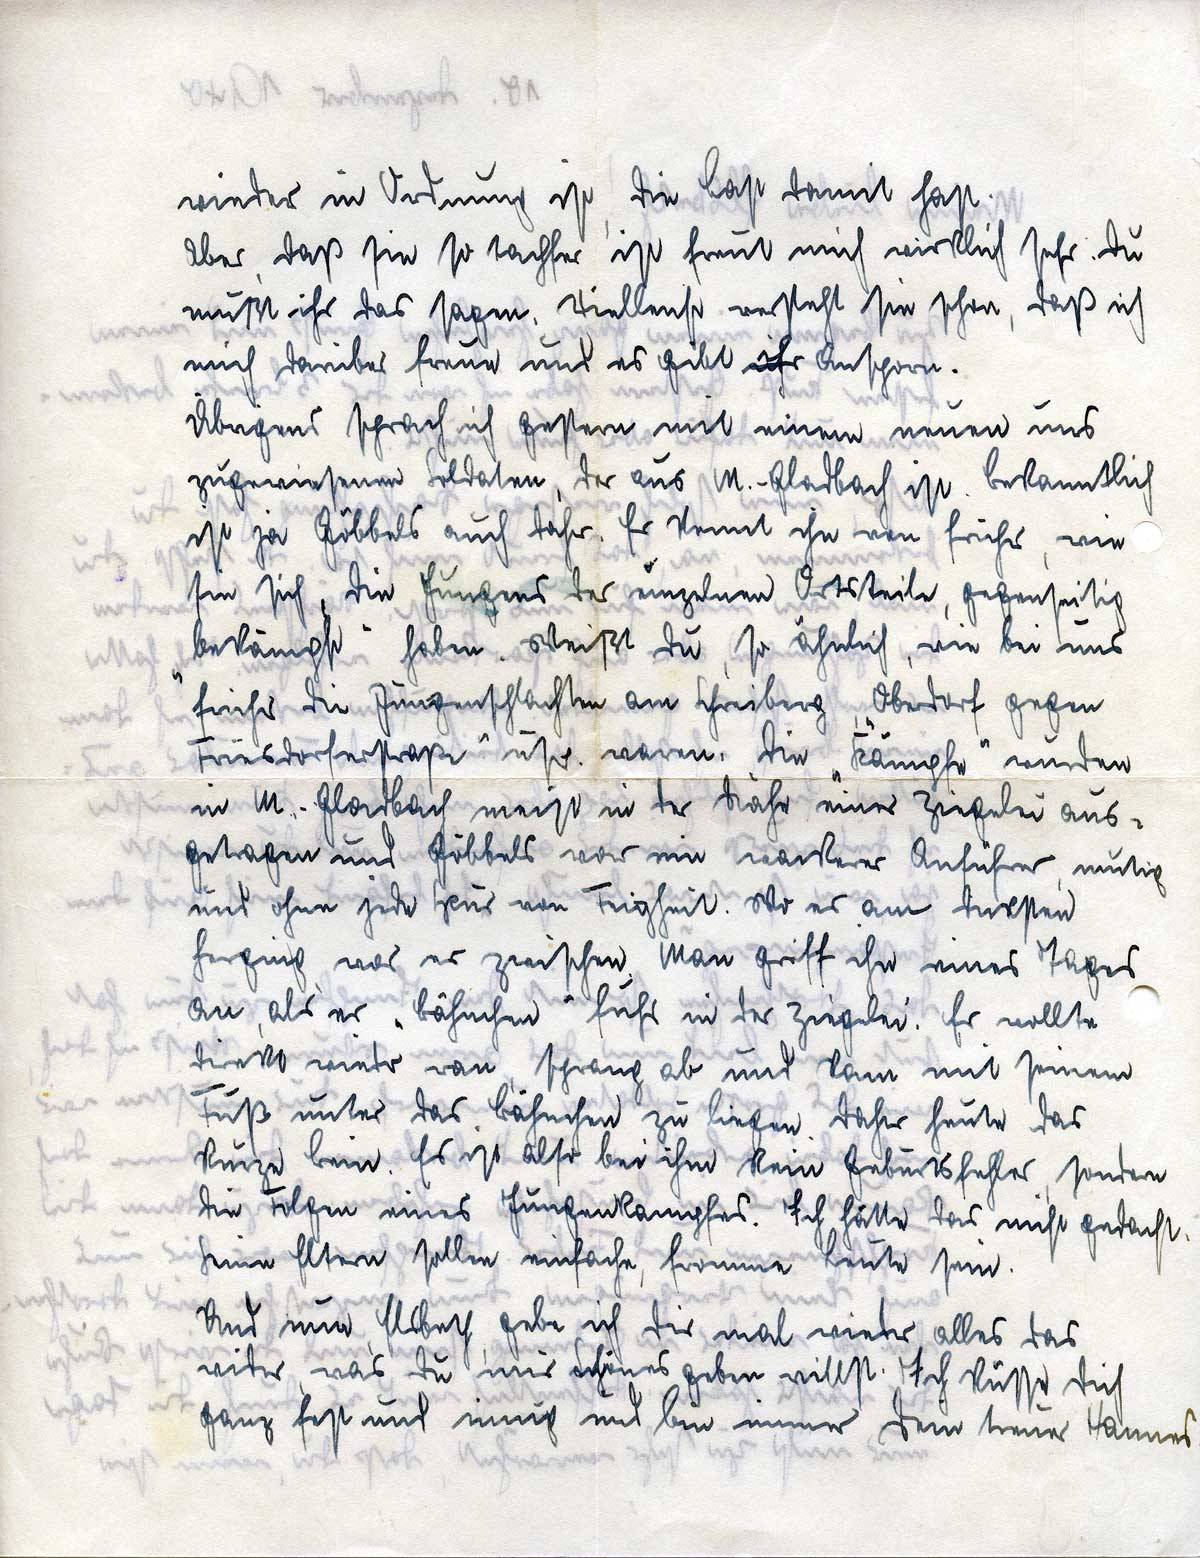 wieder in Ordnung ist, die Last damit hast.
Aber, daß sie so tapfer ist freut mich wirklich sehr. Du
mußt ihr das sagen. Vielleicht versteht sie schon, daß ich
mich darüber freue und es gibt ihr Ansporn.
Übrigens sprach ich gestern mit einem neuen uns
zugewiesenen Soldaten, der aus M.-Gladbach ist. Bekanntlich
ist ja Göbbels auch daher. Er kennt ihn von früher, wie
sie sich, die Jungens der einzelnen Ortsteile, gegenseitig
„bekämpft“ haben. Weißt Du, so ähnlich, wie bei uns
früher die Jungenschlachten am Schreiberg „Oberdorf gegen
Friesdorferstraße“ usw. waren. Die „Kämpfe“ wurden
in M.-Gladbach meist in der Nähe einer Ziegelei aus-
getragen und Göbbels war ein wackerer Anführer, mutig
und ohne jede Spur von Feigheit. Wo es am dicksten
herging war er zwischen. Man griff ihn eines Tages
an, als er „Bähnchen“ fuhr in der Ziegelei. Er wollte
direkt wieder ran, sprang ab und kam mit seinem
Fuß unter das Bähnchen zu liegen. Daher heute das
kurze Bein. Es ist also bei ihm kein Geburtsfehler, sondern
die Folgen eines Jungenkampfes. Ich hätte das nicht gedacht.
Seine Eltern sollen einfache, fromme Leute sein.
Und nun, Elsbeth, gebe ich Dir mal wieder alles das
wider, was Du mir Schönes geben willst. Ich küsse Dich
ganz fest und innig und bin immer Dein treuer Hannes